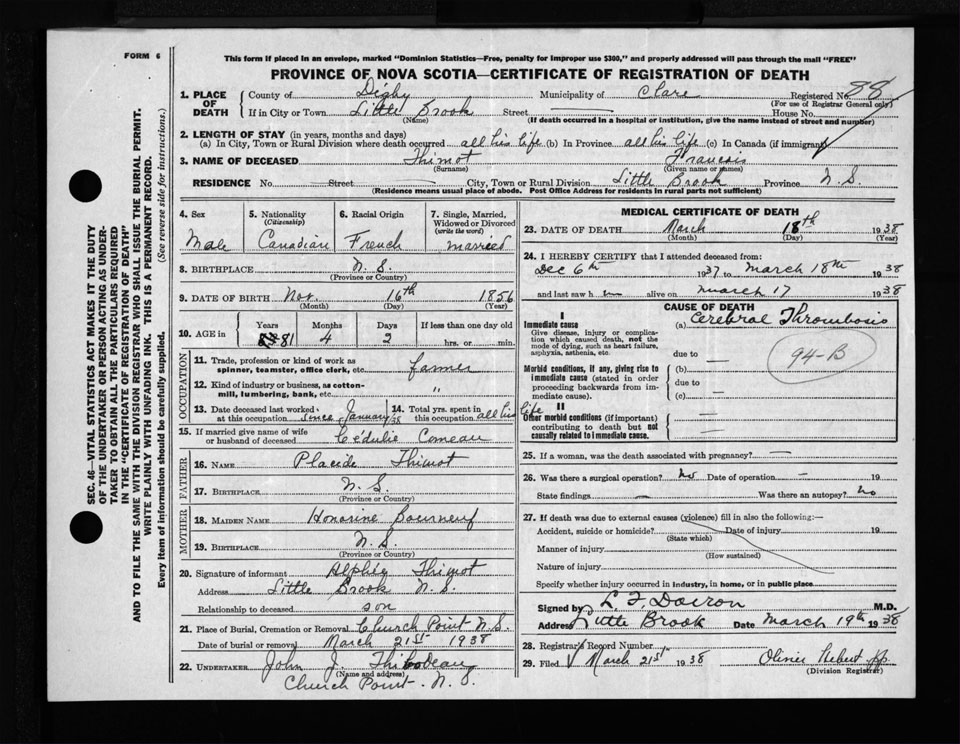 FORM 6
This form if placed in an envelope, marked "Dominion Statistics—Free, penalty for improper use $300," and properly addressed will pass through the mail "FREE"
PROVINCE OF NOVA SCOTIA—CERTIFICATE OF REGISTRATION OF DEATH
SEC. 46—VITAL STATISTICS ACT MAKES IT THE DUTY
OF THE UNDERTAKER OR PERSON ACTING AS UNDER-
TAKER TO OBTAIN ALL THE PARTICULARS REQUIRED
IN THE "CERTIFICATE OF REGISTRATION OF DEATH"
AND TO FILE THE SAME WITH THE DIVISION REGISTRAR WHO SHALL ISSUE THE BURIAL PERMIT.
WRITE PLAINLY WITH UNFADING INK. THIS IS A PERMANENT RECORD.
Every item of information should be carefully supplied. (See reverse side for instructions.)
1. PLACE OF DEATH
County of Digby Municipality of Clare Registered No. 88
(For use of Registrar General only)
If in City or Town Little Brook Street — House No.
(Name) (If death occurred in a hospital or institution, give the name instead of street and number)
2. LENGTH OF STAY (in years, months and days)
(a) In City, Town or Rural Division where death occurred all his life (b) In Province all his life (c) In Canada (if immigrant)
3. NAME OF DECEASED Thimot Francois
(Surname) (Given name or names)
RESIDENCE No. Street City, Town or Rural Division Little Brook Province N.S.
(Residence means usual place of abode. Post Office Address for residents in rural parts not sufficient)
4. Sex Male
5. Nationality (Citizenship) Canadian
6. Racial Origin French
7. Single, Married, Widowed or Divorced (write the word) married
8. BIRTHPLACE N.S.
(Province or Country)
9. DATE OF BIRTH Nov. 16th 1856
(Month) (Day) (Year)
10. AGE in Years 81 Months 4 Days 2 If less than one day old hrs. or min.
OCCUPATION
11. Trade, profession or kind of work as spinner, teamster, office clerk, etc. farmer
12. Kind of industry or business, as cotton-mill, lumbering, bank, etc. "
13. Date deceased last worked at this occupation since January
14. Total yrs. spent in this occupation all his life
15. If married give name of wife or husband of deceased Cédulie Comeau
FATHER
16. NAME Placide Thimot
17. BIRTHPLACE N.S.
(Province or Country)
MOTHER
18. MAIDEN NAME Honorine Bourneuf
19. BIRTHPLACE N.S.
(Province or Country)
20. Signature of informant Alphie Thimot
Address Little Brook N.S.
Relationship to deceased son
21. Place of Burial, Cremation or Removal Church Point N.S.
Date of burial or removal March 21st 1938
22. UNDERTAKER John J. Thibodeau
(Name and address)
Church Point N.S.
MEDICAL CERTIFICATE OF DEATH
23. DATE OF DEATH March 18th 1938
(Month) (Day) (Year)
24. I HEREBY CERTIFY that I attended deceased from:
Dec 6th 1937 to March 18th 1938
and last saw h im alive on March 17 1938
CAUSE OF DEATH
I
Immediate cause
Give disease, injury or complication which caused death, not the mode of dying, such as heart failure, asphyxia, asthenia, etc.
(a) Cerebral Thrombosis
94-B
due to —
Morbid conditions, if any, giving rise to immediate cause (stated in order proceeding backwards from immediate cause).
(b)
due to
(c)
II
Other morbid conditions (if important) contributing to death but not causally related to immediate cause.
25. If a woman, was the death associated with pregnancy? —
26. Was there a surgical operation? no Date of operation — 19
State findings — Was there an autopsy? no
27. If death was due to external causes (violence) fill in also the following:—
Accident, suicide or homicide? Date of injury 19
(State which)
Manner of injury
(How sustained)
Nature of injury
Specify whether injury occurred in industry, in home, or in public place
Signed by L. F. Doiron M.D.
Address Little Brook Date March 19th 1938
28. Registrar's Record Number
29. Filed March 21st 1938 Olivier Hebert J.P.
(Division Registrar)